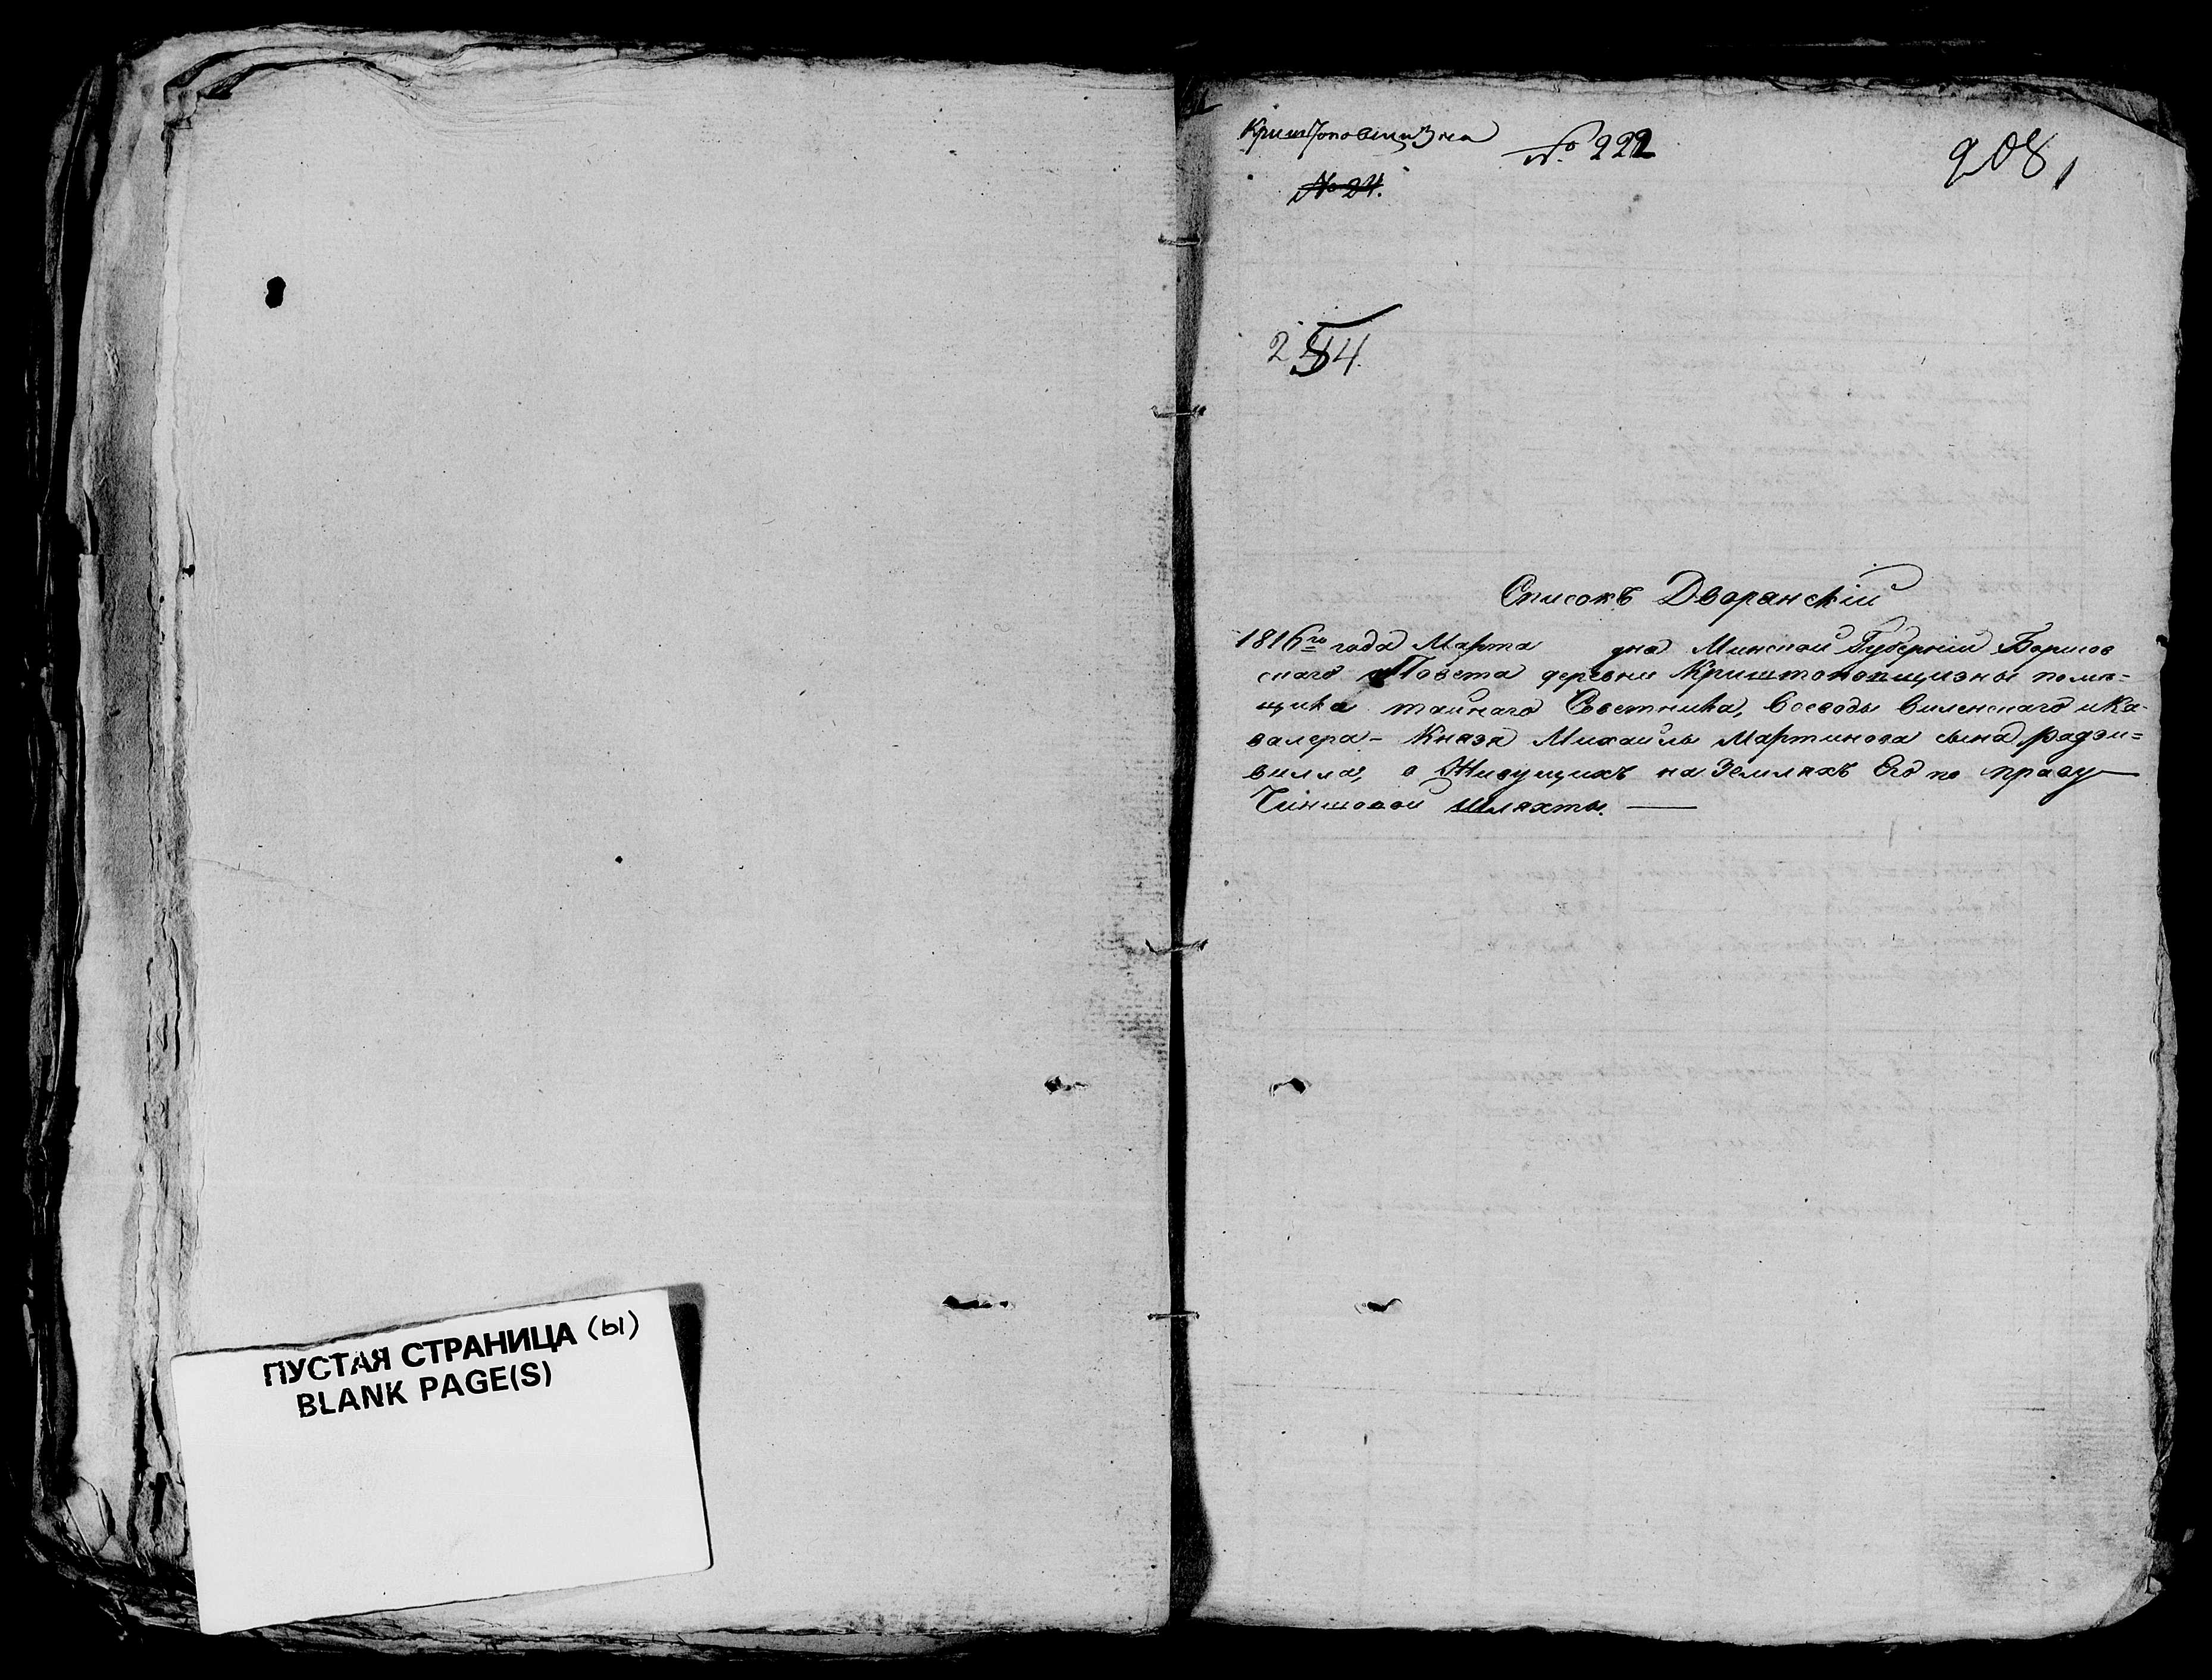 ПУСТАЯ СТРАНИЦА (ы)
BLANK PAGE(S)
Криштоповщизна
№ 222
908
№ 24.
Списокъ Дворянскій
1816го года Марта дня Минской Губерніи Борисов
скаго Повета деревни Криштопопщизны поме-
щика тайнаго Советника, Воеводы виленскаго и Ка-
валера - Князя Михаила Мартинова сына радзи=
вилла, о Живущихъ на Земляхъ Его по праву
Чиншовой шляхты.